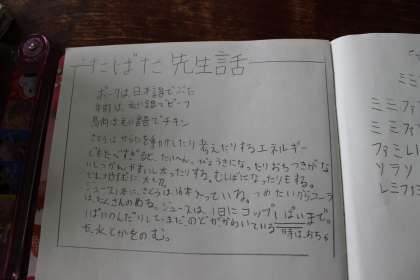 たばた先生話
ポークは日本語でぶた
牛肉は英語でビーフ
鳥肉は英語でチキン
さとうはからだを動かしたり考えたりするエネルギー
でもたべすぎると、たいへん。びょうきになったりおちつきがな
いしつかんやすい太ったりする。むしばになったりもする。
ジュース1本に、さとうは16本入っている。つめたいからコーラ
はたくさんのめる。ジュースは、1日にコップ1ぱいまで。
ぱいのんだりして、まだのどがかわいている時はおち
ゃ、水とかをのむ。
ミミ
ミミファ
ミミファ
ファミレ
ソラソ
レミファ